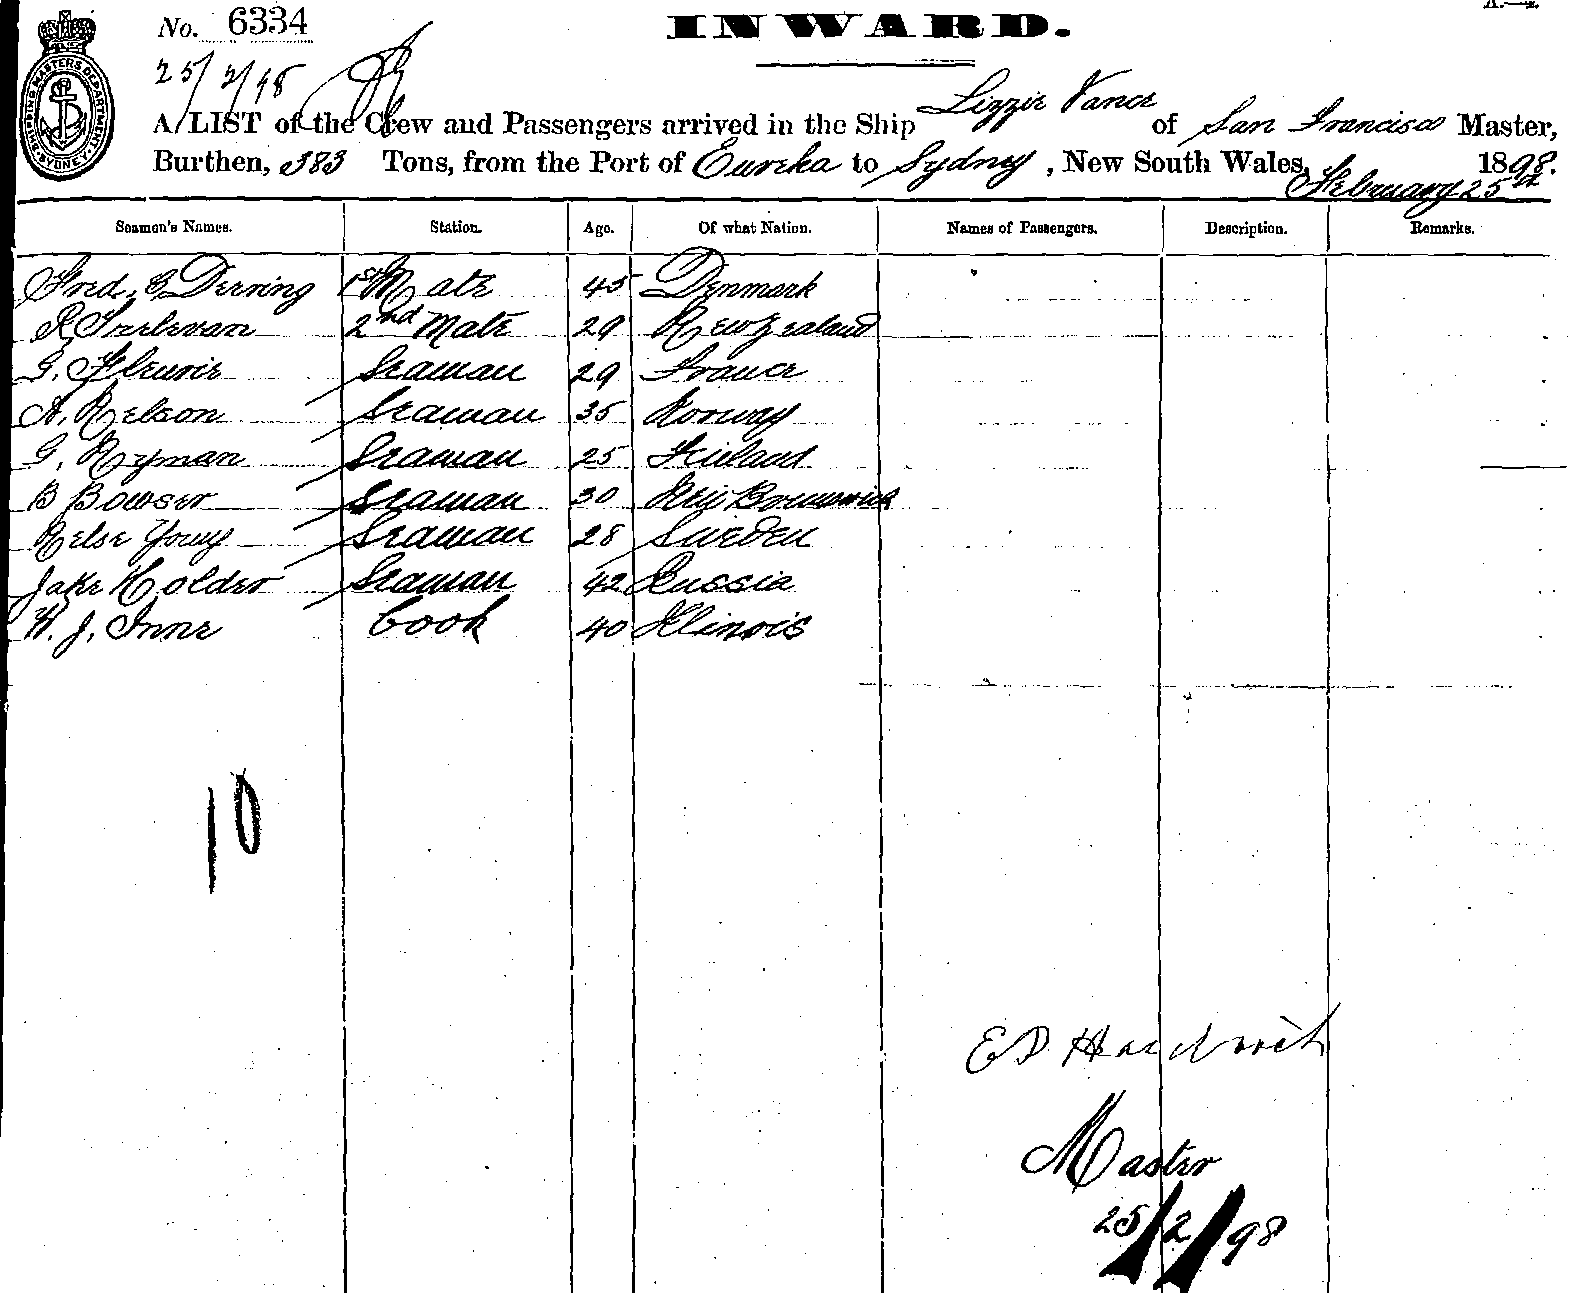 No. 6334
INWARD.
25/2/98
A LIST of the Crew and Passengers arrived in the Ship Lizzie Vance of San Francisco Master,
Burthen, 383 Tons, from the Port of Eureka to Sydney, New South Wales, 1898.
February 25th
SHIPPING MASTERS DEPARTMENT SYDNEY
Seamen's Names. Station. Age. Of what Nation. Names of Passengers. Description. Remarks.
Fred. C Deering 1st Mate 45 Denmark
R Trelevan 2nd Mate 29 New Zealand
G. Fleurie Seaman 29 France
A. Nelson Seaman 35 Norway
G. Nyman Seaman 25 Finland
B Bowser Seaman 30 New Brunswick
Nelse Young Seaman 28 Sweden
Jake Holder Seaman 42 Russia
W. J. Inne Cook 40 Illinois
10
E D
Master
25/2/98